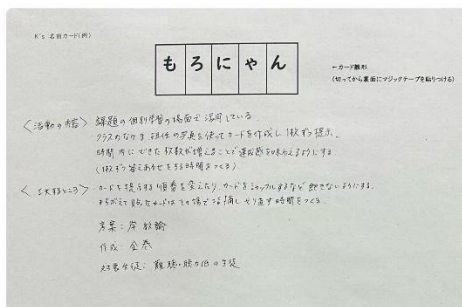 K's 名前カード(例)
もろにゃん
←カード雛形
(切ってから裏面にマジックテープを貼りつける)
〈活動の内容〉 課題の個別学習の場面で活用している。
クラスのなかま、担任の写真を使ってカードを作成し1枚ずつ提示。
時間内にできた枚数が増えることで達成感を味わえるようにする
(1枚ずつ答えあわせをする時間をつくる)
〈工夫するところ〉 カードを提示する順番を変えたり、カードをシャッフルするなど飽きないようにする。
まちがえてしまったカードはその場で
やり直す時間をつくる
考案:岸
作成:
対象生徒:
の生徒